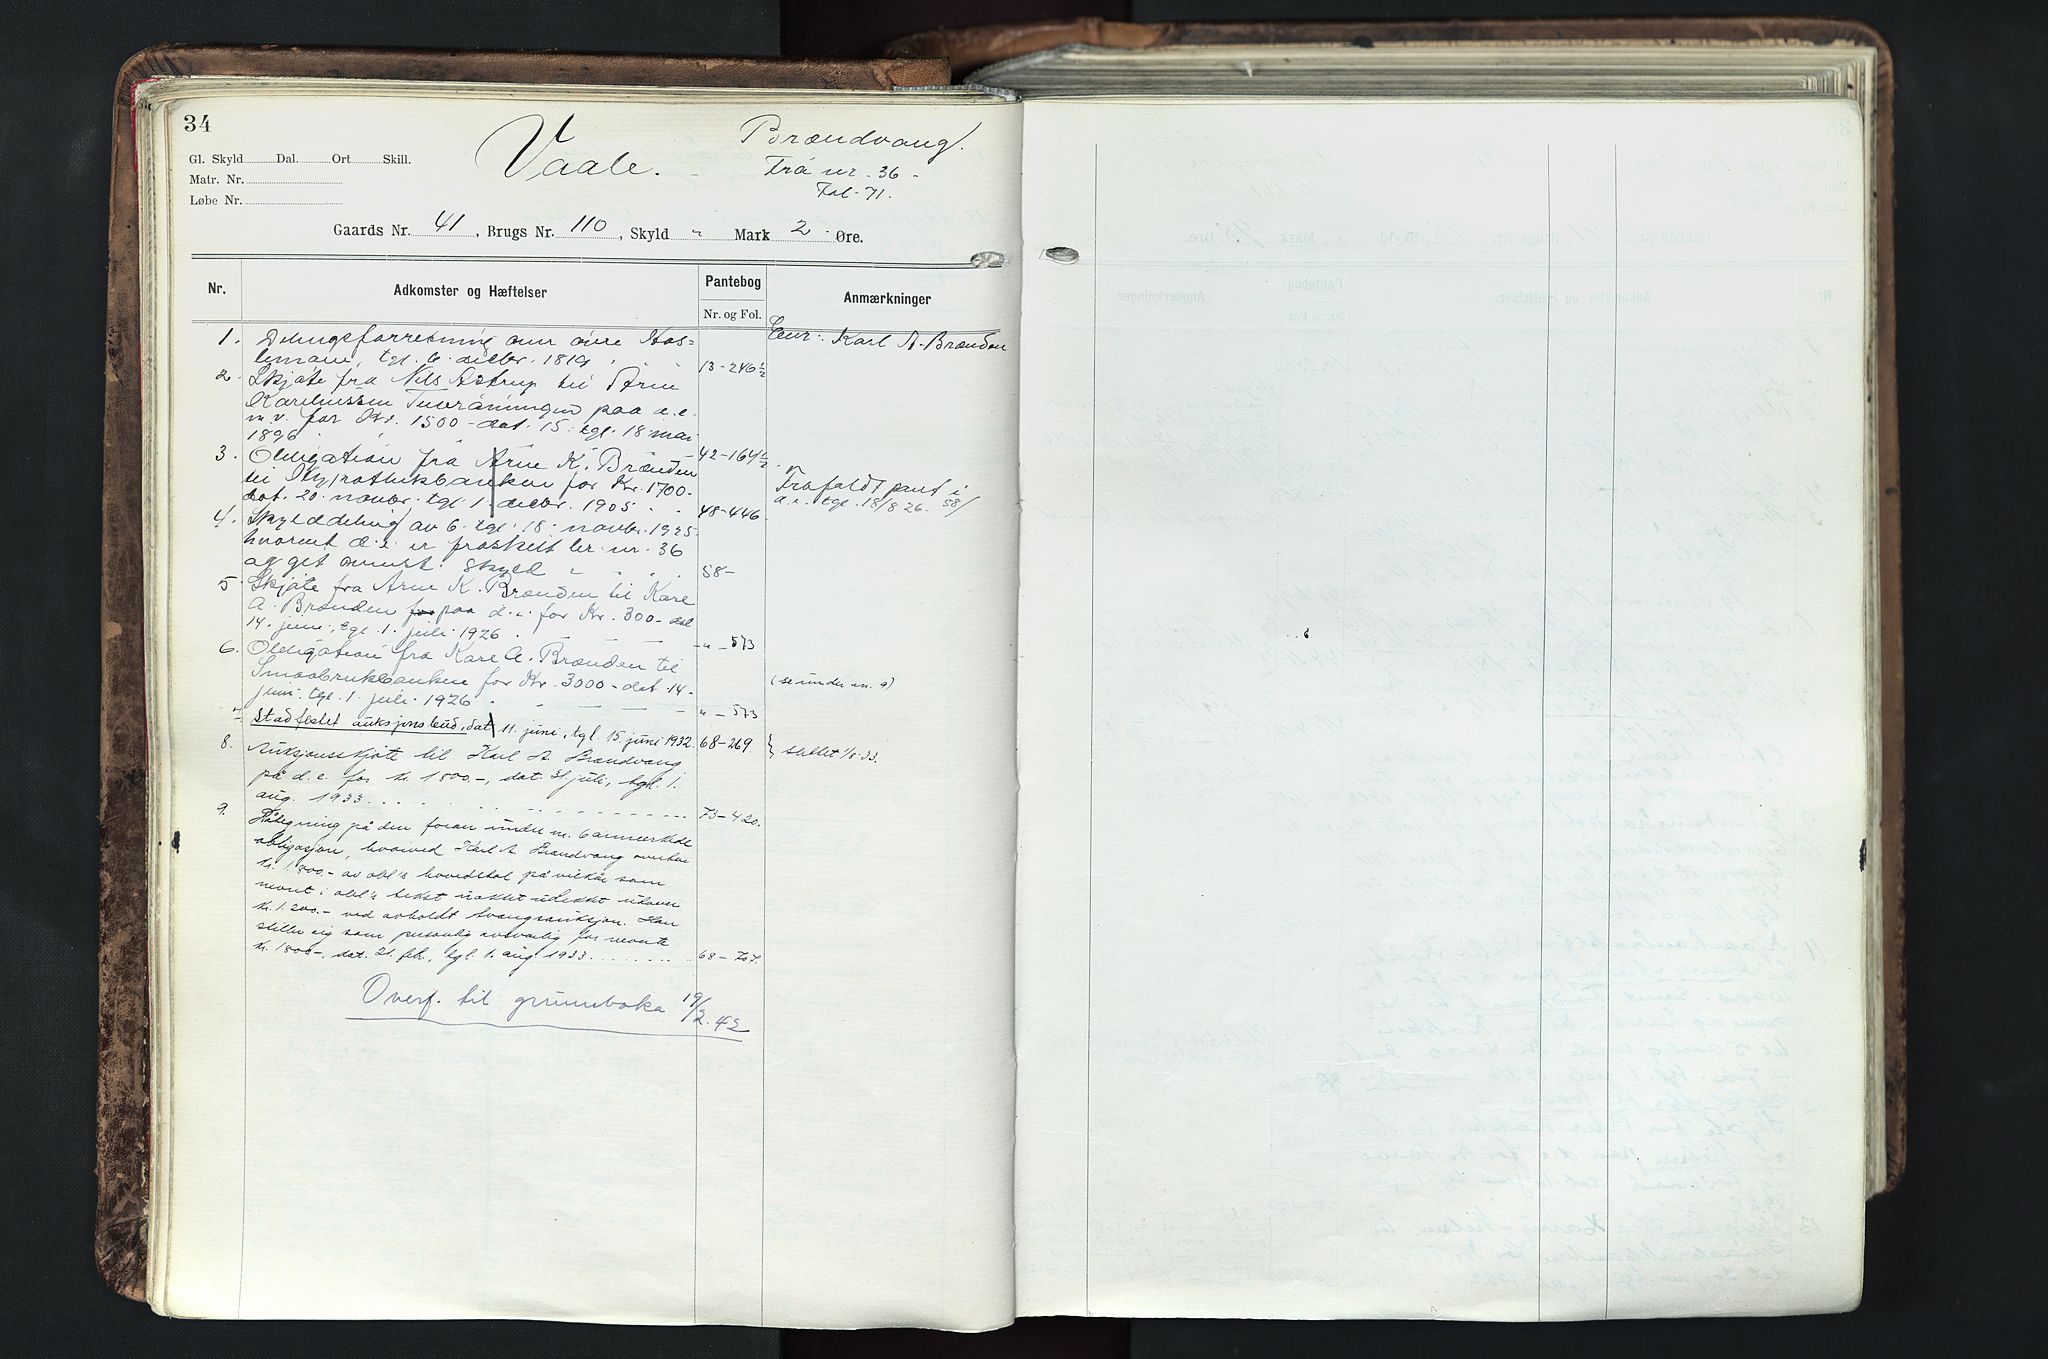 34
Vaale.
Brændvang.
Frå nr. 36
Fol. 71.
Gl. Skyld Dal. Ort Skill.
Matr. Nr.
Løbe Nr.
Gaards Nr. 41, Brugs Nr. 110, Skyld " Mark 2 Øre.
Nr. Adkomster og Hæftelser Pantebog Anmærkninger
Nr. og Fol.
Karl A. Brænden
1. Delingsforretning over
tgl. 6. 1819 13-246½
2. Skjøte fra Nils Astrup til Arne
Karelinssen paa d.e.
m.v. for Kr. 1500 - dat. 15. tgl. 18 mai
1896 42-164½
3. Obligation fra Arne K. Brænden
til Hypothekbanken for Kr. 1700-
dat. 20. novbr. tgl. 1. decbr. 1905 48-446
Frafaldt pant i
d.e. tgl. 18/8 26. 58/
4. Skylddeling av 6. tgl. 18. novbr. 1925
hvorved d.e. er fraskilt br. nr. 36
og git ovennt. skyld 58-
5. Skjøte fra Arne K. Brænden til Karl
A. Brænden for paa d.e. for Kr. 300 - dat
14. juni, tgl. 1. juli 1926 " - 573
6. Obligation fra Karl A. Brænden til
Smaabrukbanken for Kr. 3000 - dat. 14-
juni. tgl. 1. juli. 1926 " - 573
(se under nr. 9)
7. Stadfestet auksjonsbud, dat. 11. juni, tgl. 15. juni 1932. 68-269
slettet 1/8-33.
8. Auksjonsskjøte til Karl A. Brændvang
på d.e. for kr. 1800.-, dat. 31. juli, tgl. 1.
aug. 1933 73-420.
9. Påtegning på den foran under nr. 6 anmerkede
obligasjon, hvorved Karl A. Brændvang overtar
kr. 1.800.- av obl's hovedstol på vilkår som
nevnt i obl's tekst udekket utover
kr. 1.200.- ved avholdt tvangsauksjon. Han
stiller sig som personlig ansvarlig for nevnte
kr. 1800-, dat. 21. feb., tgl. 1. aug 1933 68-707.
Overf. til grunnboka 19/2.42